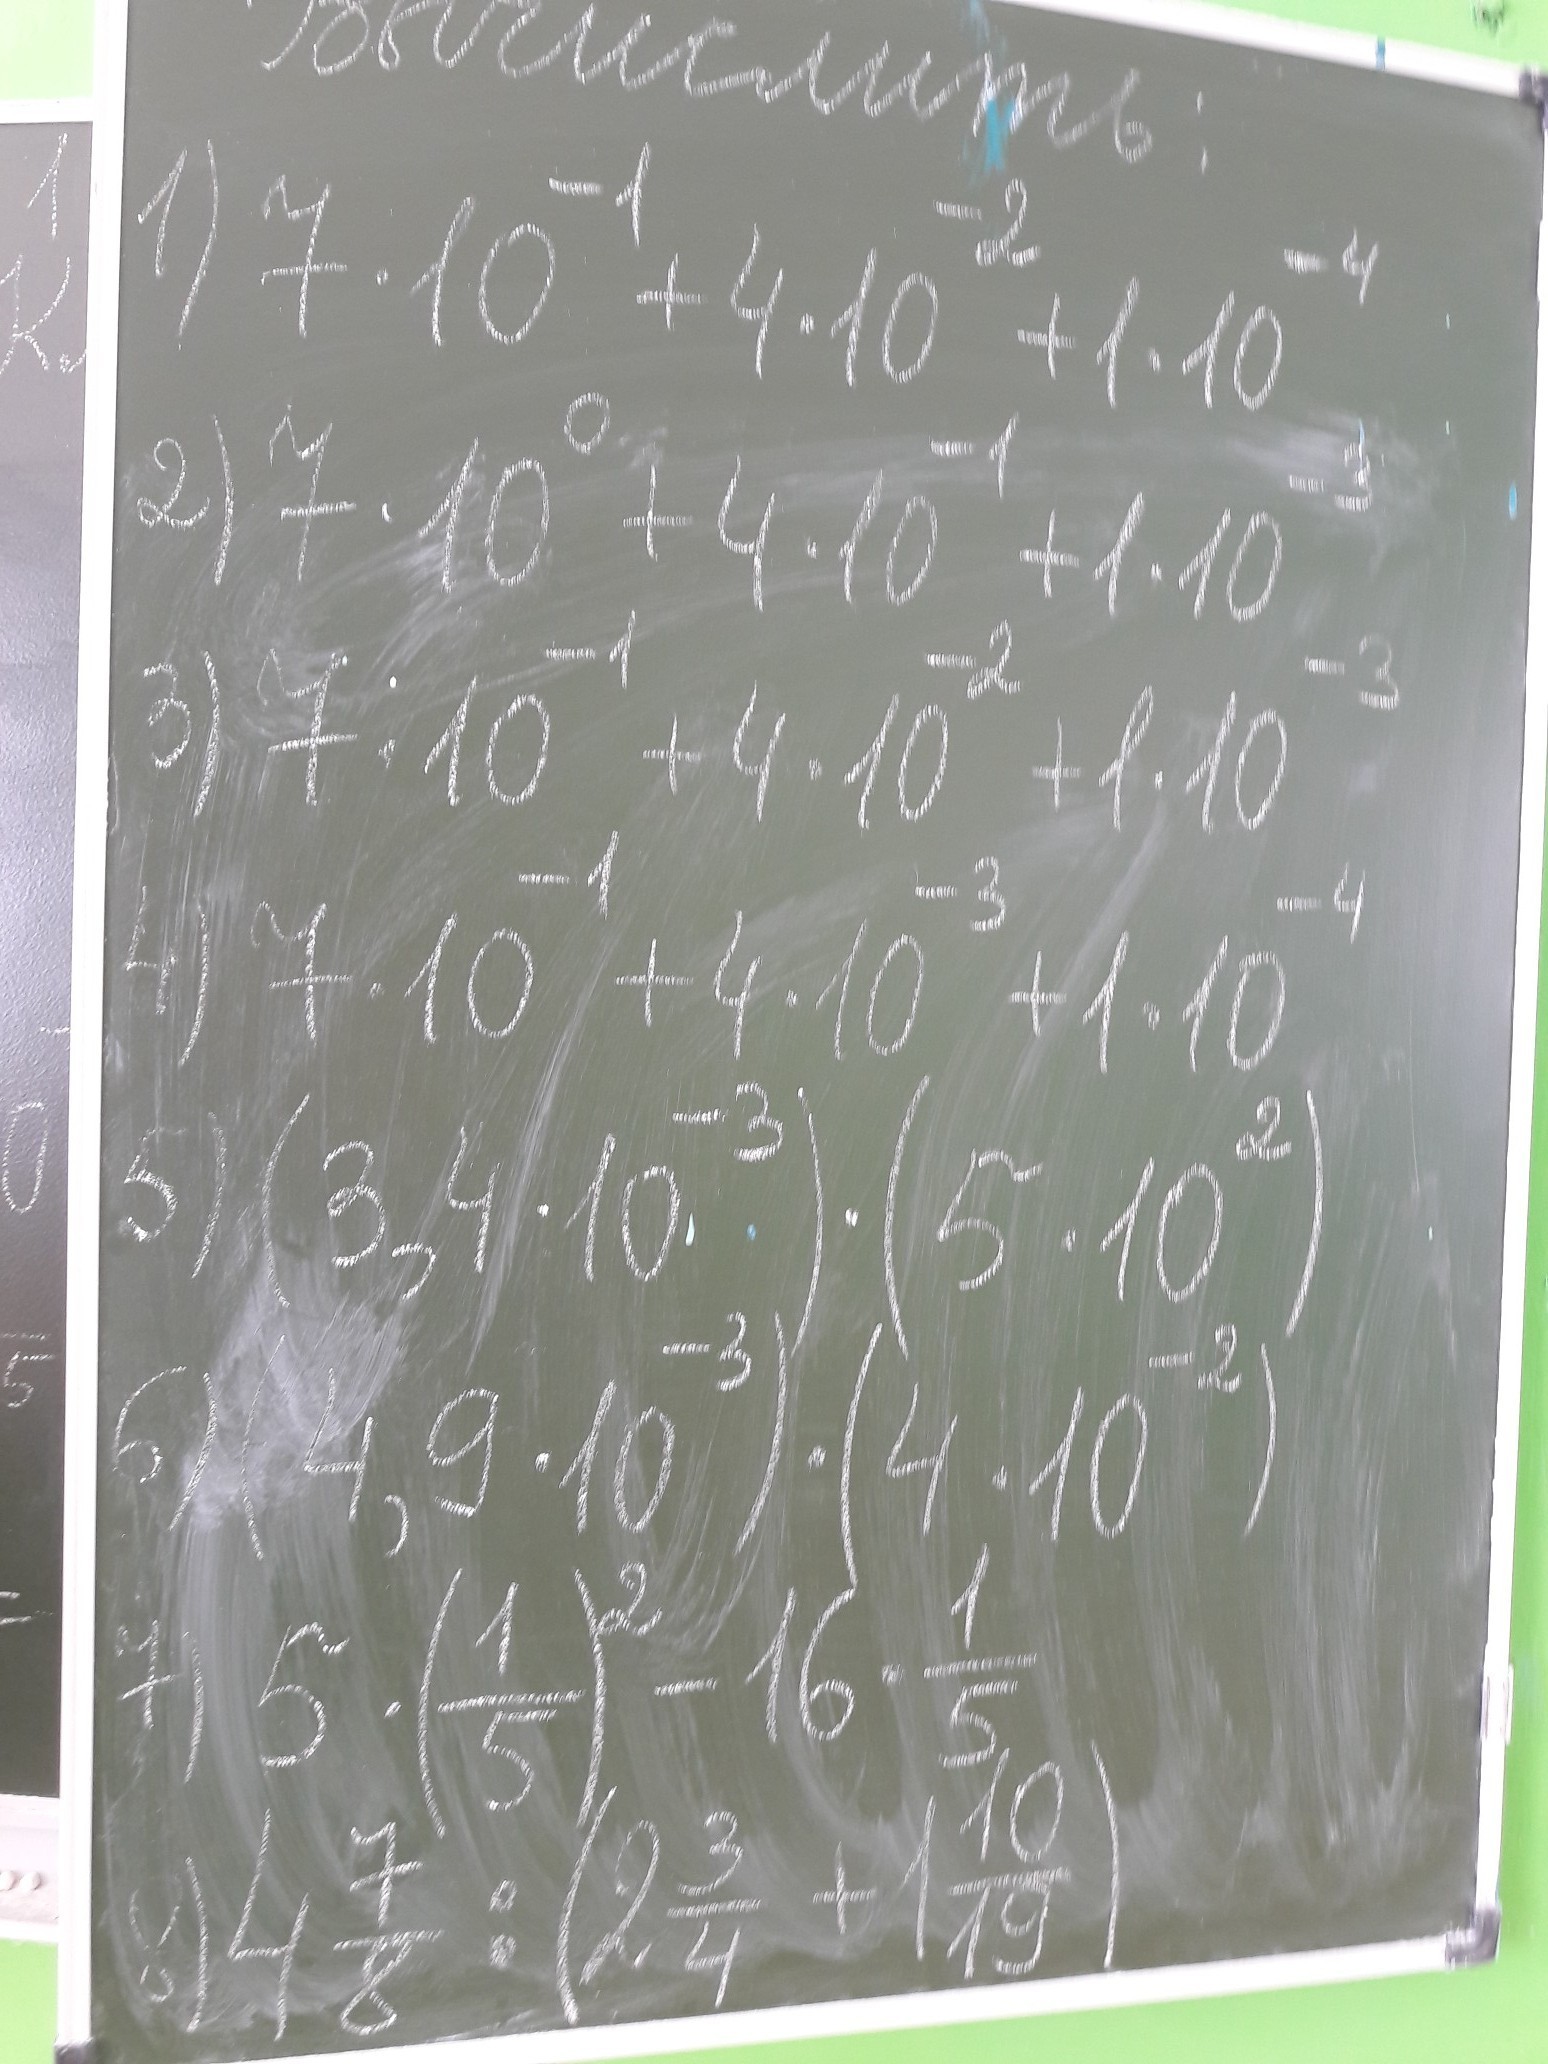 Вычислить:
1) 7·10⁻¹ + 4·10⁻² + 1·10⁻⁴
2) 7·10⁰ + 4·10⁻¹ + 1·10⁻³
3) 7·10⁻¹ + 4·10⁻² + 1·10⁻³
4) 7·10⁻¹ + 4·10⁻³ + 1·10⁻⁴
5) (3,4·10⁻³)·(5·10²)
6) (4,9·10⁻³)·(4·10⁻²)
7) 5·(1/5)² - 16·1/5
8) 4 7/8 : (2 3/4 + 1 10/19)